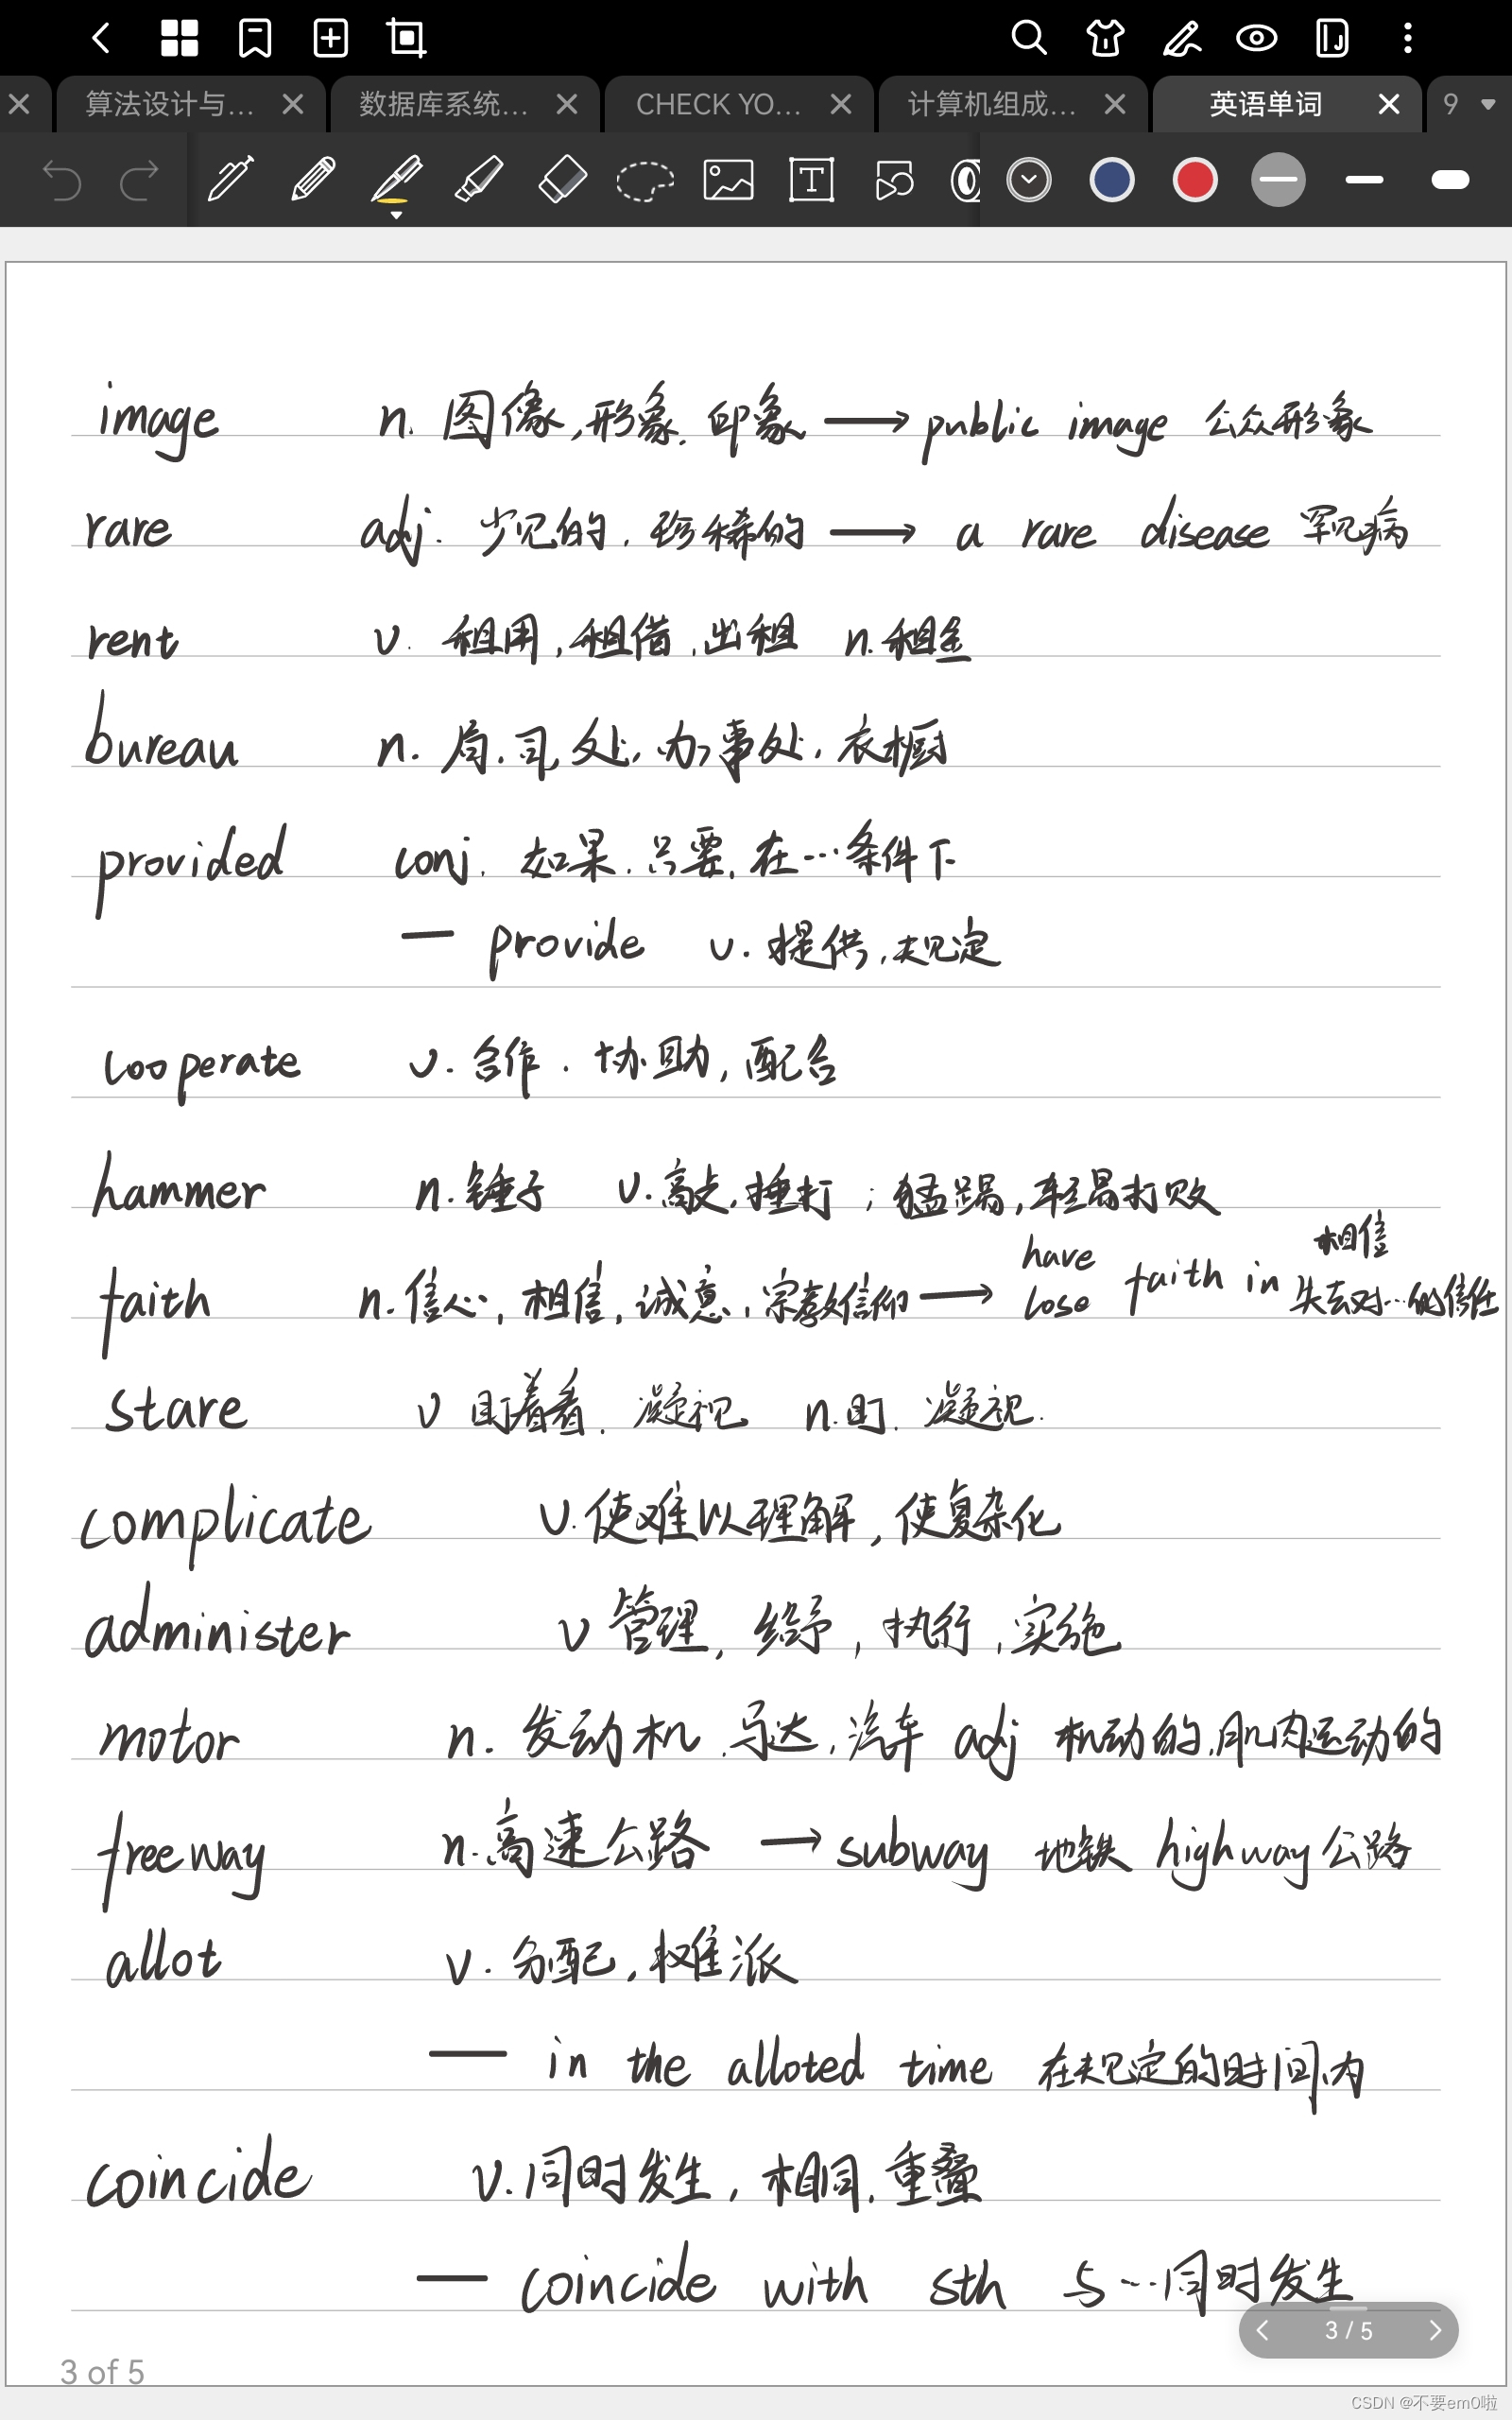 算法设计与... 数据库系统... CHECK YO... 计算机组成... 英语单词 9
image n. 图像,形象.印象 → public image 公众形象
rare adj. 少见的.珍稀的 → a rare disease 罕见病
rent v. 租用,租借,出租 n.租金
bureau n. 局.司,处,办事处,衣橱
provided conj. 如果.只要,在…条件下
— provide v. 提供,规定
cooperate v. 合作.协助,配合
hammer n.锤子 v.敲,捶打;猛踢,轻易打败
have 相信
faith n.信心,相信,诚意,宗教信仰 → lose faith in 失去对…的信任
stare v 盯着看.凝视 n.盯.凝视.
complicate v.使难以理解,使复杂化
administer v 管理,给予,执行,实施
motor n. 发动机.马达,汽车 adj 机动的,肌肉运动的
freeway n.高速公路 → subway 地铁 highway 公路
allot v. 分配,摊派
— in the alloted time 在规定的时间内
coincide v.同时发生,相同,重叠
— coincide with sth 与…同时发生
3 / 5
3 of 5
CSDN @不要em0啦